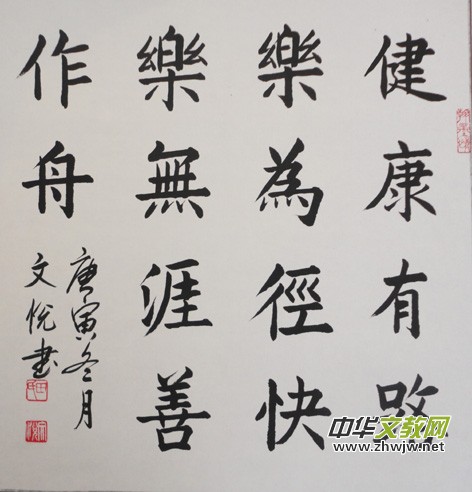 健康有路
樂為徑快
樂無涯善
作舟
庚寅冬月
文悅書
中华文教网
www.zhwjw.net